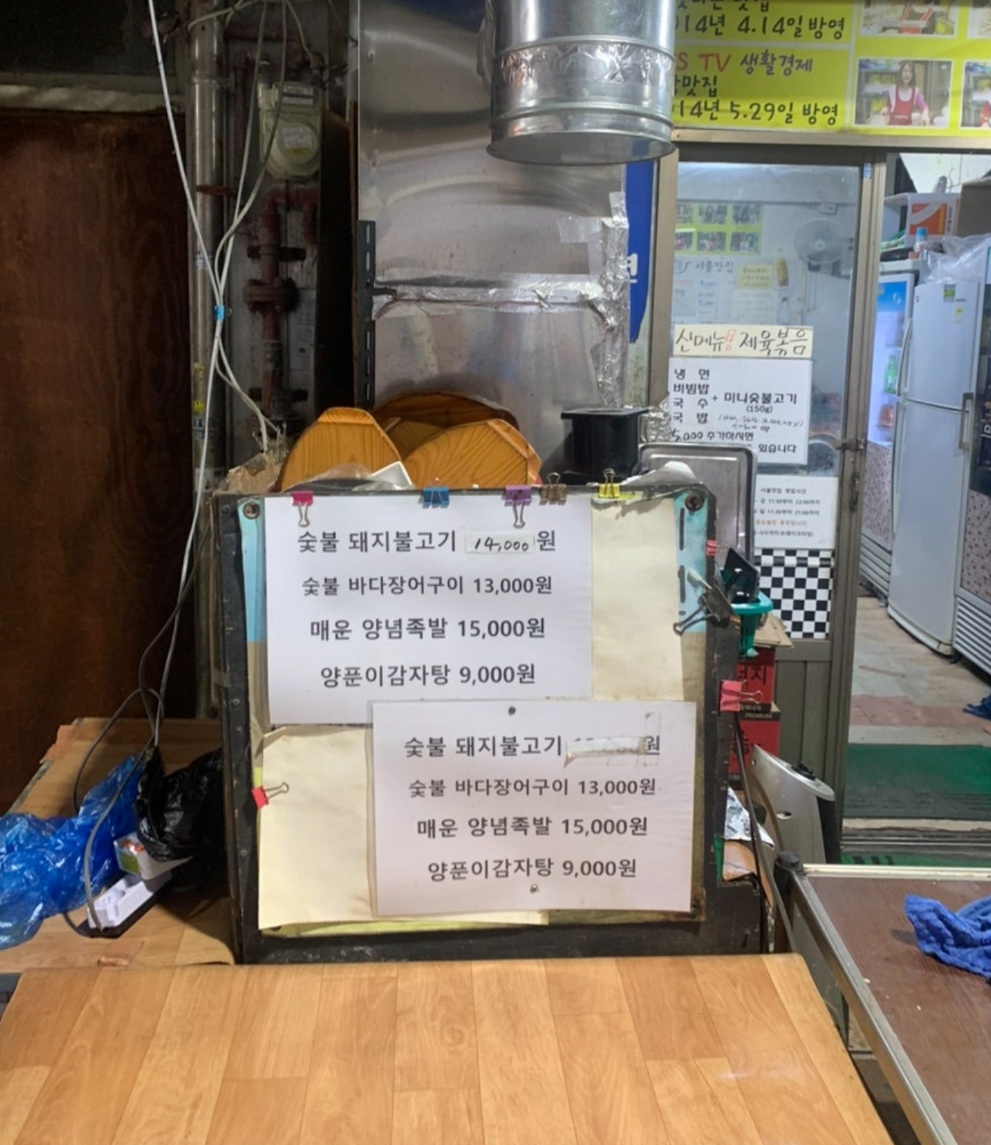 14년 4.14일 방영
TV 생활경제
맛집
14년 5.29일 방영
서울맛집
신메뉴 제육볶음
냉 면
비빔밥
국 수 + 미니숯불고기
(150g)
국 밥
5,000 추가하시면
있습니다
서울맛집 영업시간
숯불 돼지불고기 14,000원
숯불 바다장어구이 13,000원
매운 양념족발 15,000원
양푼이감자탕 9,000원
숯불 돼지불고기 원
숯불 바다장어구이 13,000원
매운 양념족발 15,000원
양푼이감자탕 9,000원
PREMIUM